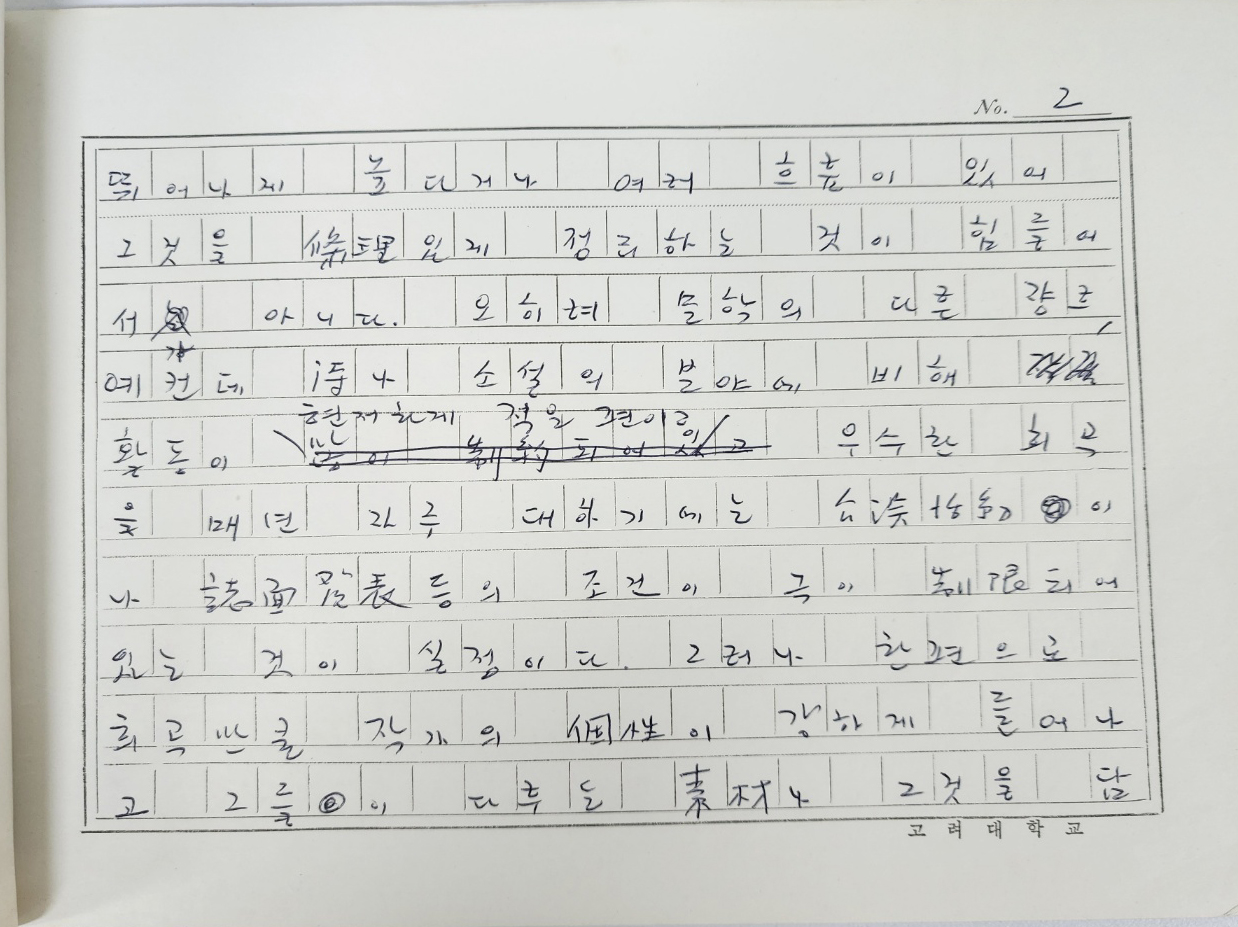 No. 2
뛰어나게 높다거나 여러 흐름이 있어
그것을 條理있게 정리하는 것이 힘들어
서 아니다. 오히려 문학의 다른 쟝르
예컨데 詩나 소설의 분야에 비해
현저하게 적은 편이고
활동이 우수한 희곡
을 매년 자주 대하기에는 公演活動이
나 誌面發表등의 조건이 극이 制限되어
있는 것이 실정이다. 그러나 한편으로
희곡쓰는 작가의 個性이 강하게 들어나
고 그들이 다루는 素材나 그것을 담
고려대학교